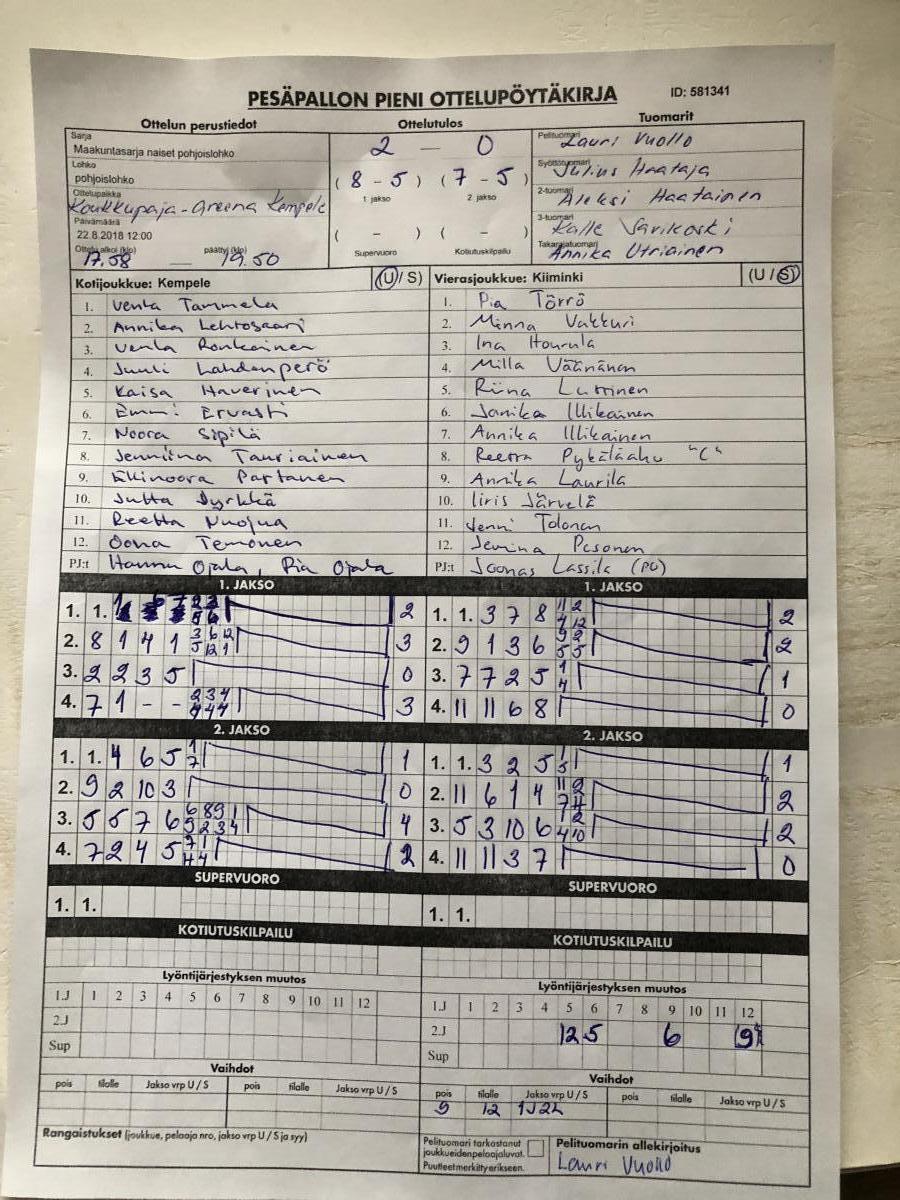 PESÄPALLON PIENI OTTELUPÖYTÄKIRJA ID: 581341
Ottelun perustiedot Ottelutulos Tuomarit
Sarja
Maakuntasarja naiset pohjoislohko
2 — 0
Pelituomari Lauri Vuollo
Lohko
pohjoislohko
(8 - 5) (7 - 5)
1. jakso 2. jakso
Syöttötuomari Julius Haataja
Ottelupaikka
Koukkupaja-Areena Kempele
2-tuomari Aleksi Haatainen
Päivämäärä
22.8.2018 12:00
( - ) ( - )
3-tuomari Kalle Särikoski
Ottelu alkoi (klo) 17.58 — päättyi (klo) 19.50
Supervuoro Kotiutuskilpailu
Takarajatuomari Annika Utriainen
Kotijoukkue: Kempele (U / S) Vierasjoukkue: Kiiminki (U / S)
1. Venla Tammela 1. Pia Törrö
2. Annika Lehtosaari 2. Minna Vakkuri
3. Venla Ronkainen 3. Ina Hourula
4. Juuli Lahdenperö 4. Milla Väänänen
5. Kaisa Haverinen 5. Riina Luttinen
6. Emmi Ervasti 6. Janika Illikainen
7. Noora Sipilä 7. Annika Illikainen
8. Jenniina Tauriainen 8. Reetta Pykäläaho "C"
9. Ellinoora Partanen 9. Annika Laurila
10. Jutta Jyrkkä 10. Iiris Järvelä
11. Reetta Nuojua 11. Jenni Tolonen
12. Oona Temonen 12. Jemina Pesonen
PJ:t Hannu Ojala, Pia Ojala PJ:t Joonas Lassila (PJ)
1. JAKSO 1. JAKSO
1. 1. 2 1. 1. 3 7 8 11 2 4 12 2
2. 8 1 4 1 3 6 12 5 12 1 3 2. 9 1 3 6 9 2 5 5 2
3. 2 2 3 5 0 3. 7 7 2 5 1 4 1
4. 7 1 - - 2 3 4 4 4 4 3 4. 11 11 6 8 0
2. JAKSO 2. JAKSO
1. 1. 4 6 5 1 7 1 1. 1. 3 2 5 1 5 1
2. 9 2 10 3 0 2. 11 6 1 4 11 2 7 4 2
3. 5 5 7 6 6 8 9 1 9 2 3 4 4 3. 5 3 10 6 1 2 4 10 2
4. 7 2 4 5 7 1 4 4 2 4. 11 11 3 7 0
SUPERVUORO SUPERVUORO
1. 1. 1. 1.
KOTIUTUSKILPAILU KOTIUTUSKILPAILU
Lyöntijärjestyksen muutos Lyöntijärjestyksen muutos
1.J 1 2 3 4 5 6 7 8 9 10 11 12 1.J 1 2 3 4 5 6 7 8 9 10 11 12
2.J 2.J 12 5 6 9
Sup Sup
Vaihdot Vaihdot
pois tilalle Jakso vrp U / S pois tilalle Jakso vrp U / S pois tilalle Jakso vrp U / S pois tilalle Jakso vrp U / S
9 12 1J2L
Rangaistukset (joukkue, pelaaja nro, jakso vrp U / S ja syy)
Pelituomari tarkastanut
joukkueidenpelaajaluvat.
Puutteet merkitty erikseen.
Pelituomarin allekirjoitus
Lauri Vuollo